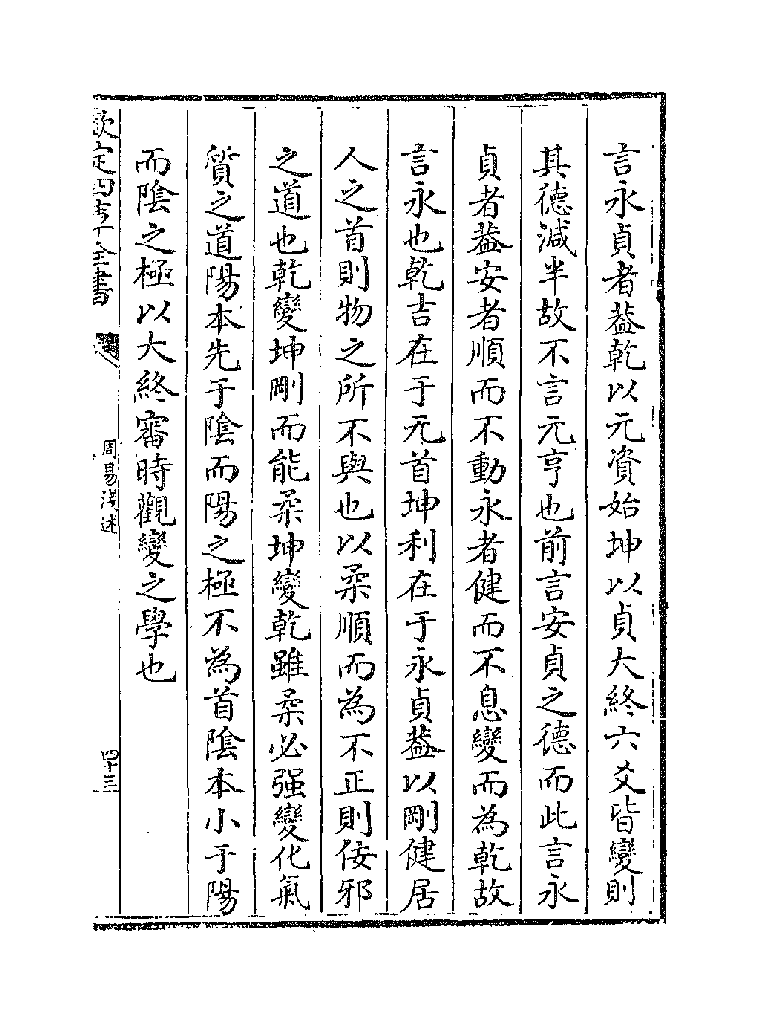 言永貞者葢乾以元資始坤以貞大終六爻皆變則
其德減半故不言元亨也前言安貞之德而此言永
貞者葢安者順而不動永者健而不息變而為乾故
言永也乾吉在于元首坤利在于永貞葢以剛健居
人之首則物之所不與也以柔順而為不正則佞邪
之道也乾變坤剛而能柔坤變乾雖柔必强變化氣
質之道陽本先于陰而陽之極不為首陰本小于陽
而陰之極以大終審時觀變之學也
欽定四庫全書
周易淺述
四十三